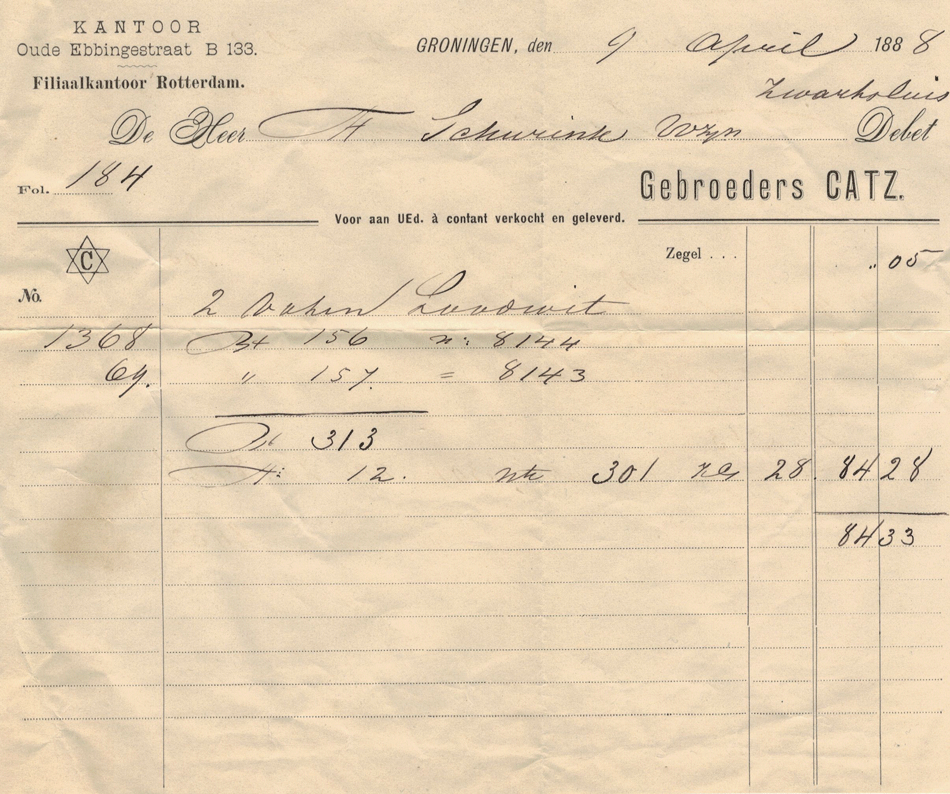 KANTOOR
Oude Ebbingestraat B 133.
Filiaalkantoor Rotterdam.
GRONINGEN, den 9 April 1888
De Heer H Schurink Wzn Debet
Fol. 184
Gebroeders CATZ.
Voor aan UEd. à contant verkocht en geleverd.
C
Zegel ... " 05
No.
2 vaten Loodwit
1368 Bt 156 n: 8144
69. " 157. = 8143
Bt 313
12. nto 301 28. 84 28
84 33